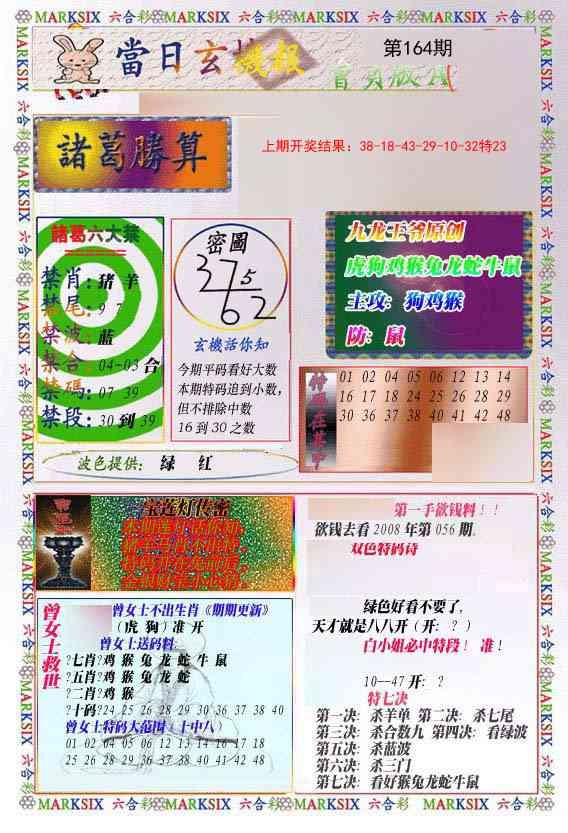 MARKSIX 六合彩 MARKSIX 六合彩 MARKSIX 六合彩 MARKSIX 六合彩 MARKSIX
當日玄機報
第164期
諸葛勝算
上期开奖结果：38-18-43-29-10-32特23
諸葛六大禁
禁肖：猪 羊
禁尾：9 7
禁波：蓝
禁合：04-03 合
禁碼：07 39
禁段：30 到 39
密圖
37562
玄機活你知
今期平码看好大数
本期特码追到小数，
但不排除中数
16 到 30 之数
九龙王爷原创
虎狗鸡猴兔龙蛇牛鼠
主攻：狗鸡猴
防：鼠
特码在其中
01 02 04 05 06 12 13 14
16 17 18 24 25 26 28 29
30 36 37 38 40 41 42 48
波色提供： 绿 红
宝莲灯传密
曾女士救世
曾女士不出生肖《期期更新》
（虎 狗）准 开
曾女士送码料：
?七肖?鸡 猴 兔 龙 蛇 牛 鼠
?五肖?鸡 猴 兔 龙 蛇
?二肖?鸡 猴
?十码?24 25 26 28 29 30 36 37 38 40
曾女士特码大范围（十中八）
01 02 04 05 06 12 13 14 16 17 18
25 26 28 29 30 36 37 38 40 41 42 48
第一手欲钱料！！
欲钱去看 2008 年第 056 期。
双色特码诗
绿色好看不要了，
天才就是八八开（开：？）
白小姐必中特段！ 准！
10--47 开：？
特七决
第一决：杀羊单 第二决：杀七尾
第三决：杀合数九 第四决：看绿波
第五决：杀蓝波
第六决：杀三门
第七决：看好猴兔龙蛇牛鼠
MARKSIX 六合彩 MARKSIX 六合彩 MARKSIX 六合彩 MARKSIX 六合彩 MARKSIX